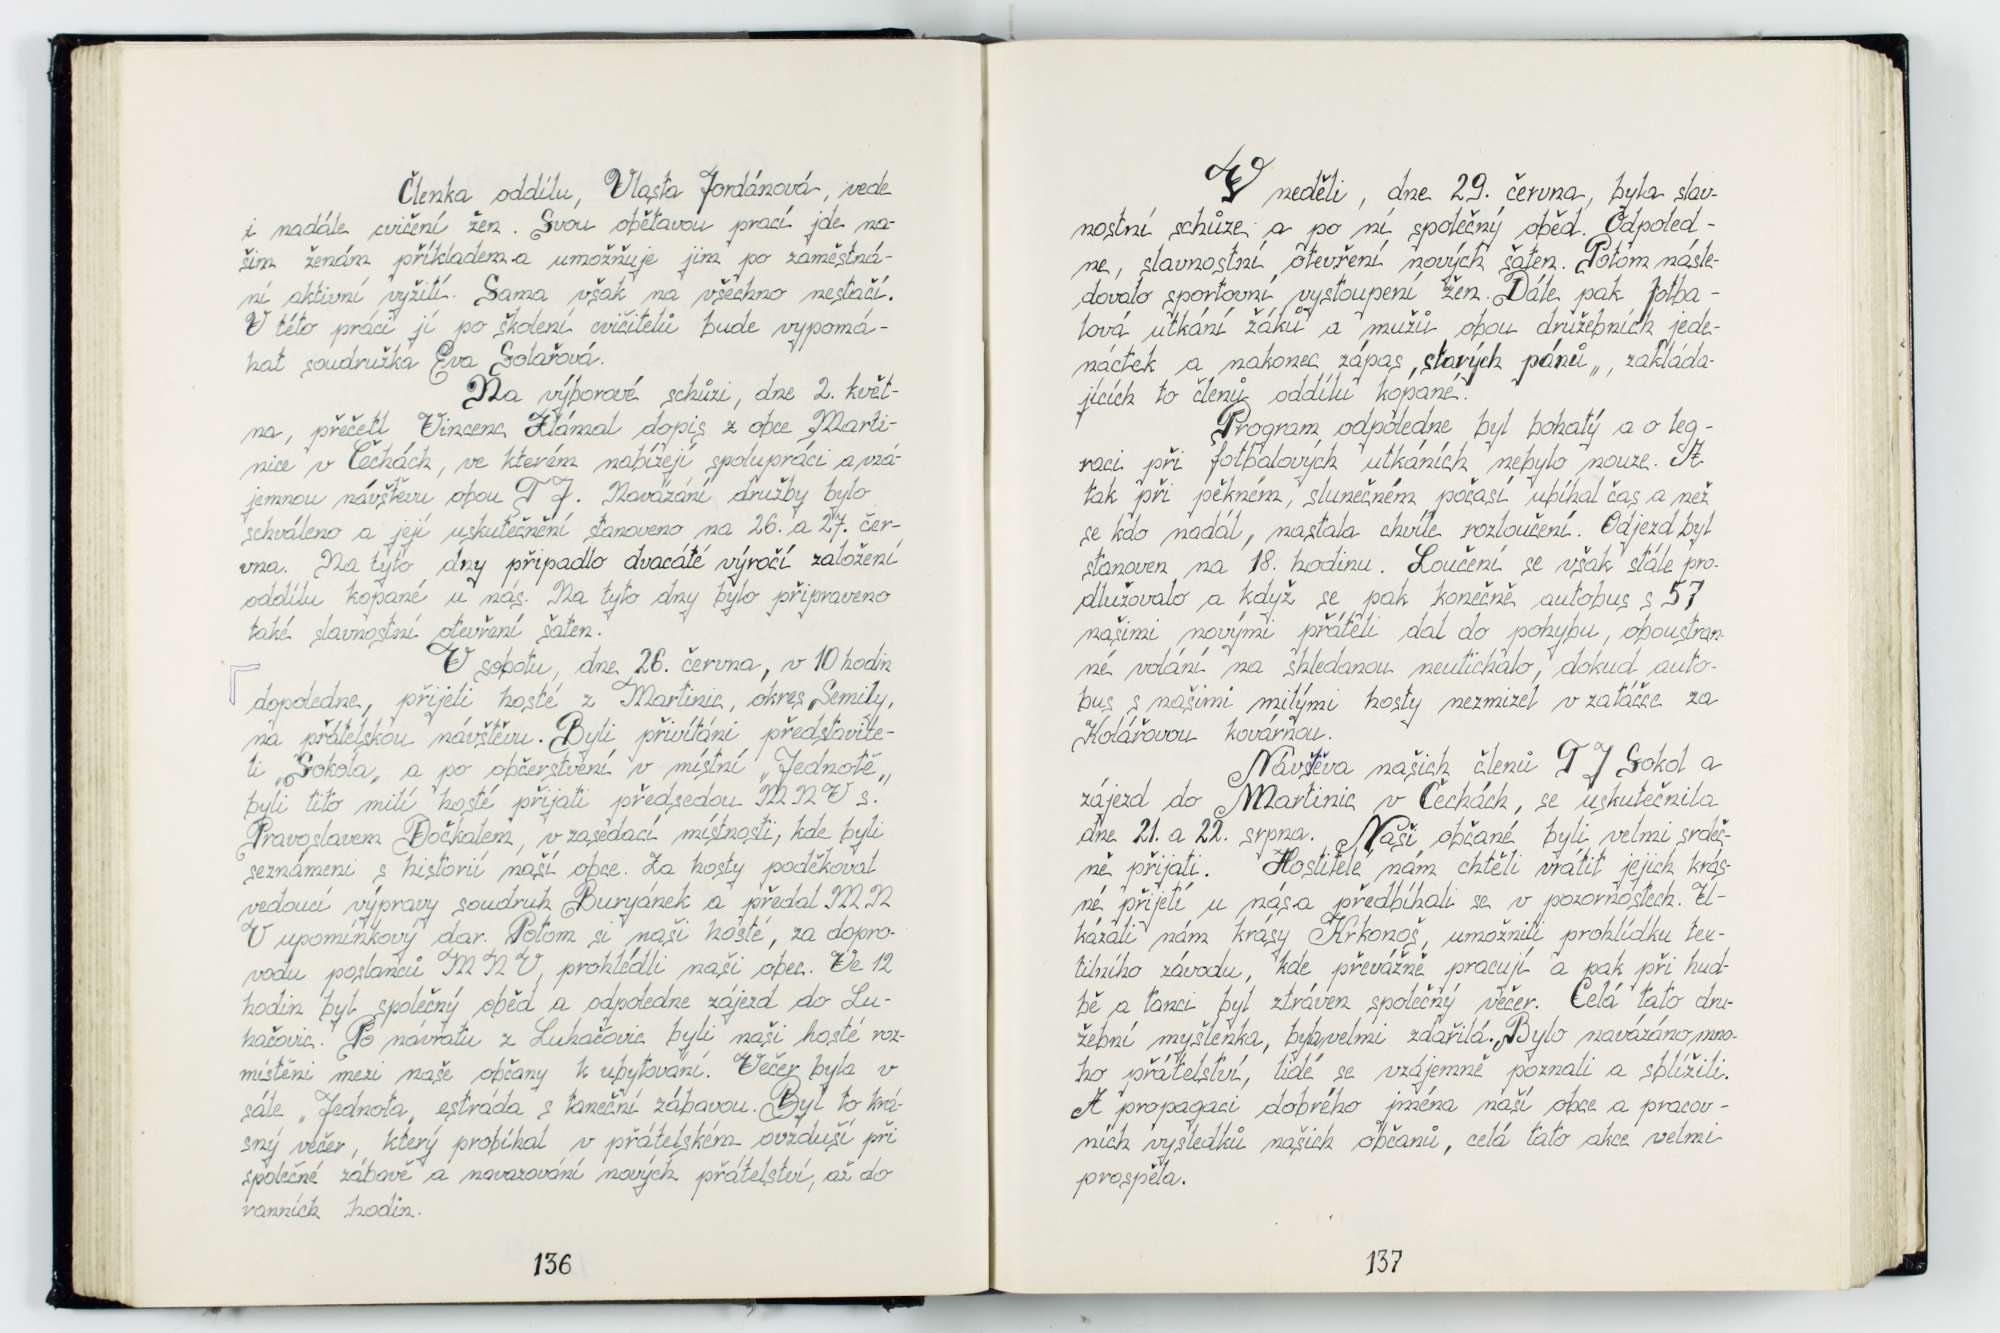 Členka oddílu, Vlasta Jordánová, vede
i nadále cvičení žen. Svou obětavou prací jde na-
šim ženám příkladem a umožňuje jim po zaměstná-
ní aktivní vyžití. Sama však na všechno nestačí.
V této práci jí po školení cvičitelů bude vypomá-
hat soudružka Eva Solařová.
Na výborové schůzi, dne 2. květ-
na, přečetl Vincenc Hlámal dopis z obce Marti-
nice v Čechách, ve kterém nabízejí spolupráci a vzá-
jemnou návštěvu obou T J. Navázání družby bylo
schváleno a její uskutečnění stanoveno na 26. a 27. čer-
vna. Na tyto dny připadlo dvacáté výročí založení
oddílu kopané u nás. Na tyto dny bylo připraveno
také slavnostní otevření šaten.
V sobotu, dne 26. června, v 10 hodin
dopoledne, přijeli hosté z Martinic, okres Semily,
na přátelskou návštěvu. Byli přivítáni představite-
li „Sokola„ a po občerstvení v místní „Jednotě„
byli tito milí hosté přijati předsedou MNV s.
Pravoslavem Dočkalem, v zasedací místnosti, kde byli
seznámeni s historií naší obce. Za hosty poděkoval
vedoucí výpravy soudruh Buryánek a předal MN
V upomínkový dar. Potom si naši hosté, za dopro-
vodu poslanců MNV, prohlédli naši obec. Ve 12
hodin byl společný oběd a odpoledne zájezd do Lu-
hačovic. Po návratu z Luhačovic byli naši hosté roz-
místěni mezi naše občany k ubytování. Večer byla v
sále „Jednota„ estráda s taneční zábavou. Byl to krá-
sný večer, který probíhal v přátelském ovzduší při
společné zábavě a navazování nových přátelství, až do
ranních hodin.
136
V neděli, dne 29. června, byla slav-
nostní schůze a po ní společný oběd. Odpoled-
ne, slavnostní otevření nových šaten. Potom násle-
dovalo sportovní vystoupení žen. Dále pak fotba-
lová utkání žáků a mužů obou družebních jede-
náctek a nakonec zápas „starých pánů„, zakláda-
jících to členů oddílu kopané.
Program odpoledne byl bohatý a o leg-
raci při fotbalových utkáních nebylo nouze. A
tak při pěkném, slunečném počasí ubíhal čas a než
se kdo nadál, nastala chvíle rozloučení. Odjezd byl
stanoven na 18. hodinu. Loučení se však stále pro-
dlužovalo a když se pak konečně autobus s 57
našimi novými přáteli dal do pohybu, oboustran-
né volání na shledanou neutichalo, dokud auto-
bus s našimi milými hosty nezmizel v zatáčce za
Kolářovou kovárnou.
Návštěva našich členů T J Sokol a
zájezd do Martinic v Čechách, se uskutečnila
dne 21. a 22. srpna. Naši občané byli velmi srdeč-
ně přijati. Hostitelé nám chtěli vrátit jejich krás-
né přijetí u nás a předbíhali se v pozornostech. U-
kázali nám krásy Krkonoš, umožnili prohlídku tex-
tilního závodu, kde převážně pracují a pak při hud-
bě a tanci byl ztráven společný večer. Celá tato dru-
žební myšlenka, byla velmi zdařilá. Bylo navázáno mno-
ho přátelství, lidé se vzájemně poznali a sblížili.
A propagaci dobrého jména naší obce a pracov-
ních výsledků našich občanů, celá tato akce velmi
prospěla.
137